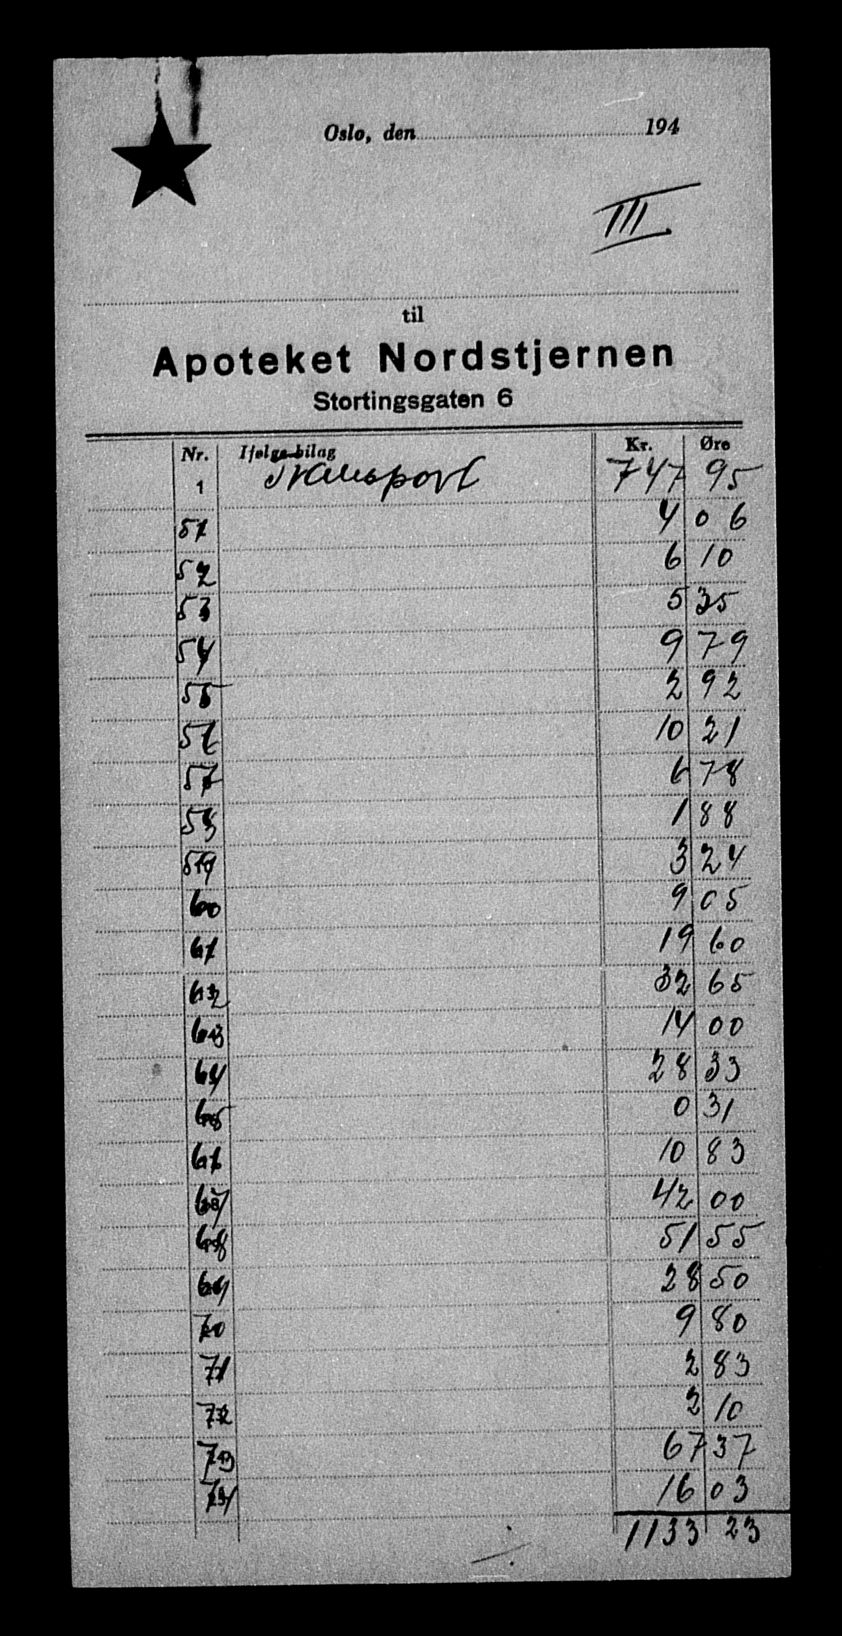 Oslo, den 194
III.
til
Apoteket Nordstjernen
Stortingsgaten 6
Nr. Ifølge bilag Kr. Øre
1 Transport 747 95
51 4 06
52 6 10
53 5 35
54 9 79
55 2 92
56 10 21
57 6 78
58 1 88
59 3 24
60 9 05
61 19 60
62 32 65
63 14 00
64 28 33
65 0 31
66 10 83
67 42 00
68 51 55
69 28 50
70 9 80
71 2 83
72 2 10
73 67 37
74 16 03
1133 23